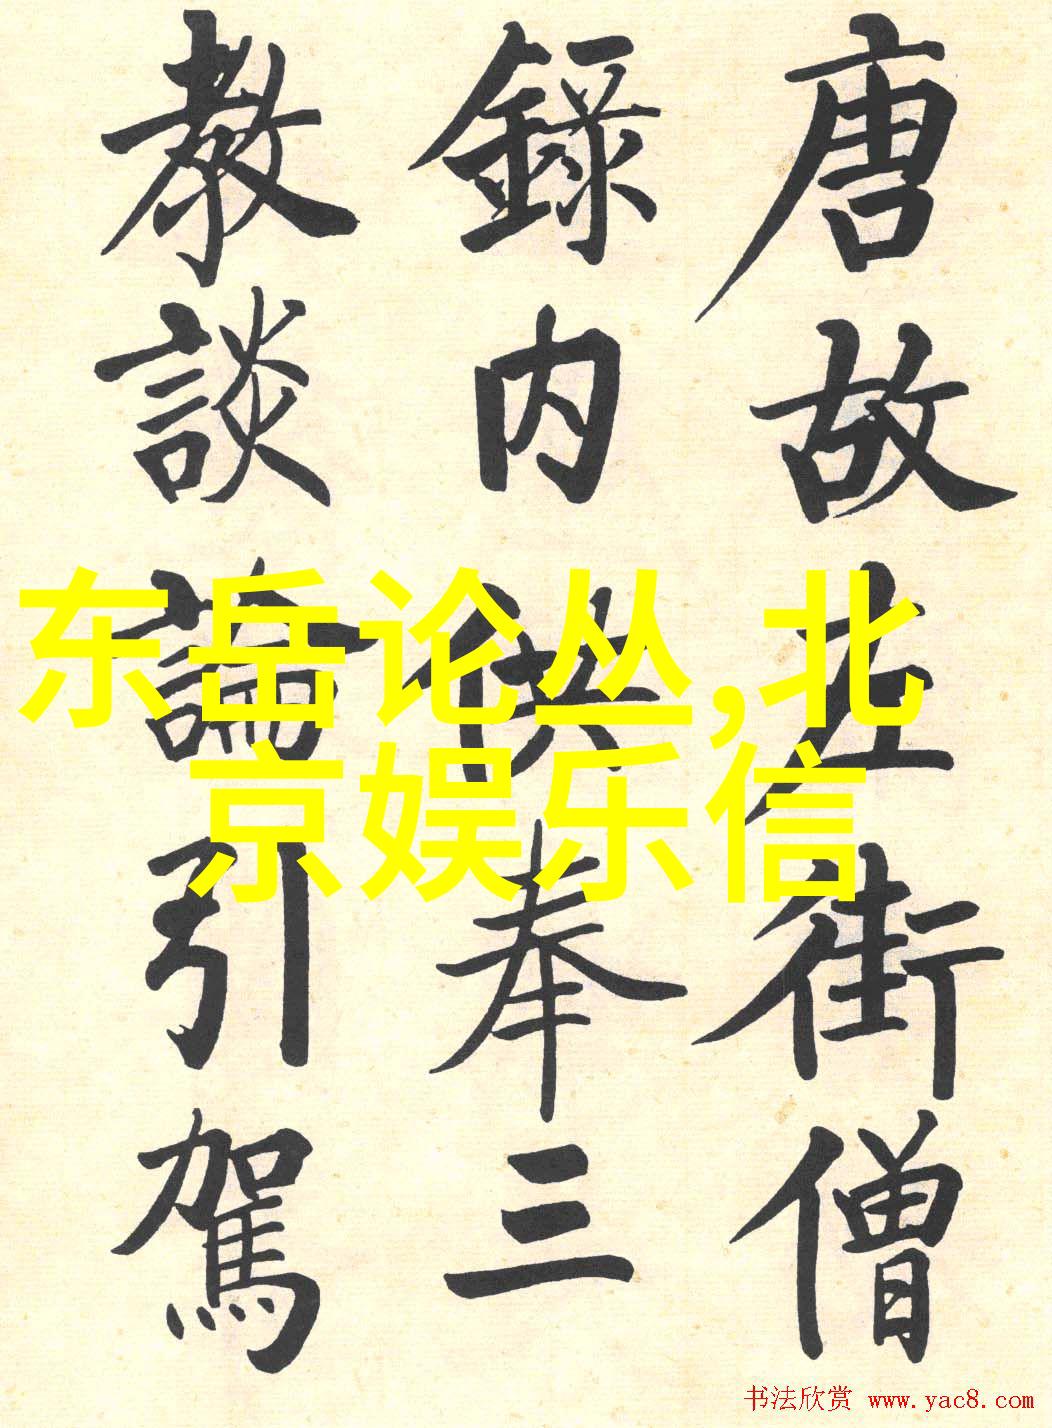 唐故左街僧
錄内供奉三
教談論引駕
东岳论丛,北
京娱乐信
书法欣赏 www.yac8.com